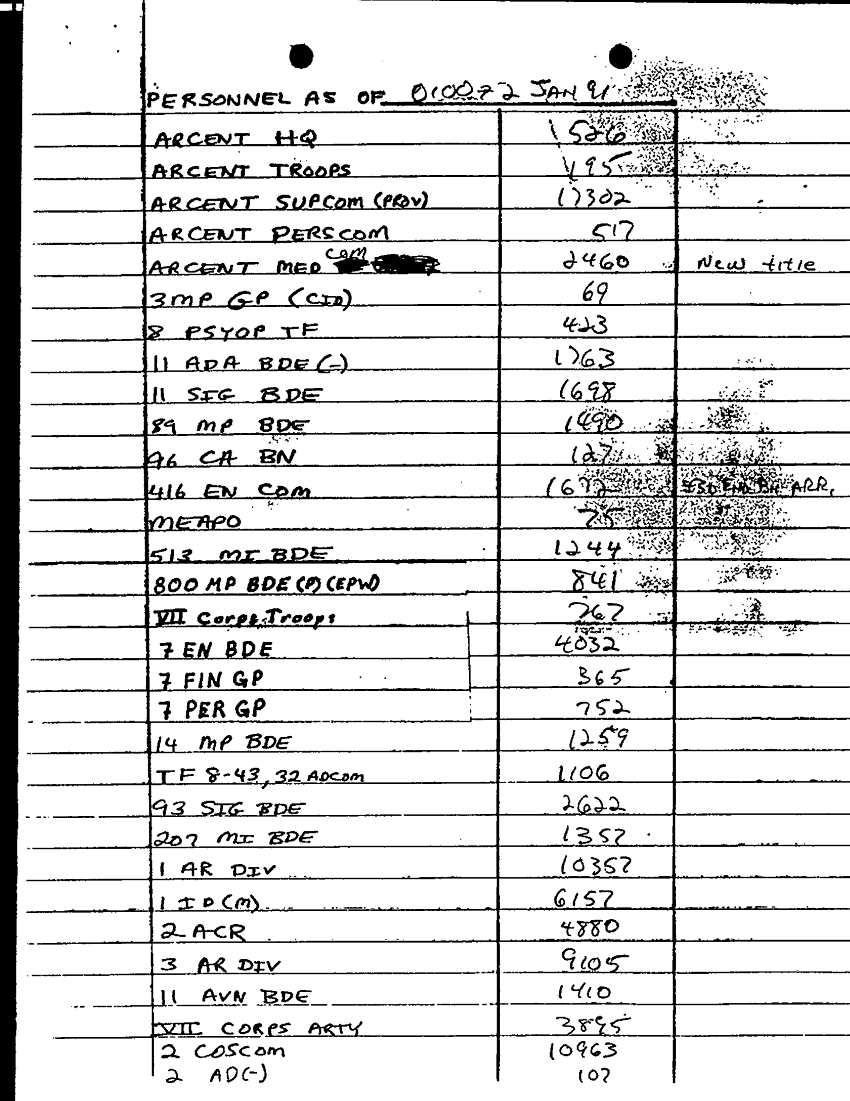 PERSONNEL AS OF 010072 JAN 91
ARCENT HQ 1526
ARCENT TROOPS 195
ARCENT SUPCOM (PROV) 17302
ARCENT PERSCOM 517
ARCENT MED COM 2460 New title
3 MP GP (CID) 69
8 PSYOP TF 423
11 ADA BDE (-) 1763
11 SIG BDE 1698
89 MP BDE 1490
96 CA BN 127
416 EN COM ARR,
MEAPO 75
513 MI BDE 1244
800 MP BDE (P) (EPW) 841
VII Corps Troops 767
7 EN BDE 4032
7 FIN GP 365
7 PER GP 752
14 MP BDE 1259
TF 8-43, 32 ADCOM 1106
93 SIG BDE 2622
207 MI BDE 1357
1 AR DIV 10357
1 ID (M) 6157
2 ACR 4880
3 AR DIV 9105
11 AVN BDE 1410
VII CORPS ARTY 3895
2 COSCOM 10963
2 AD(-) 107